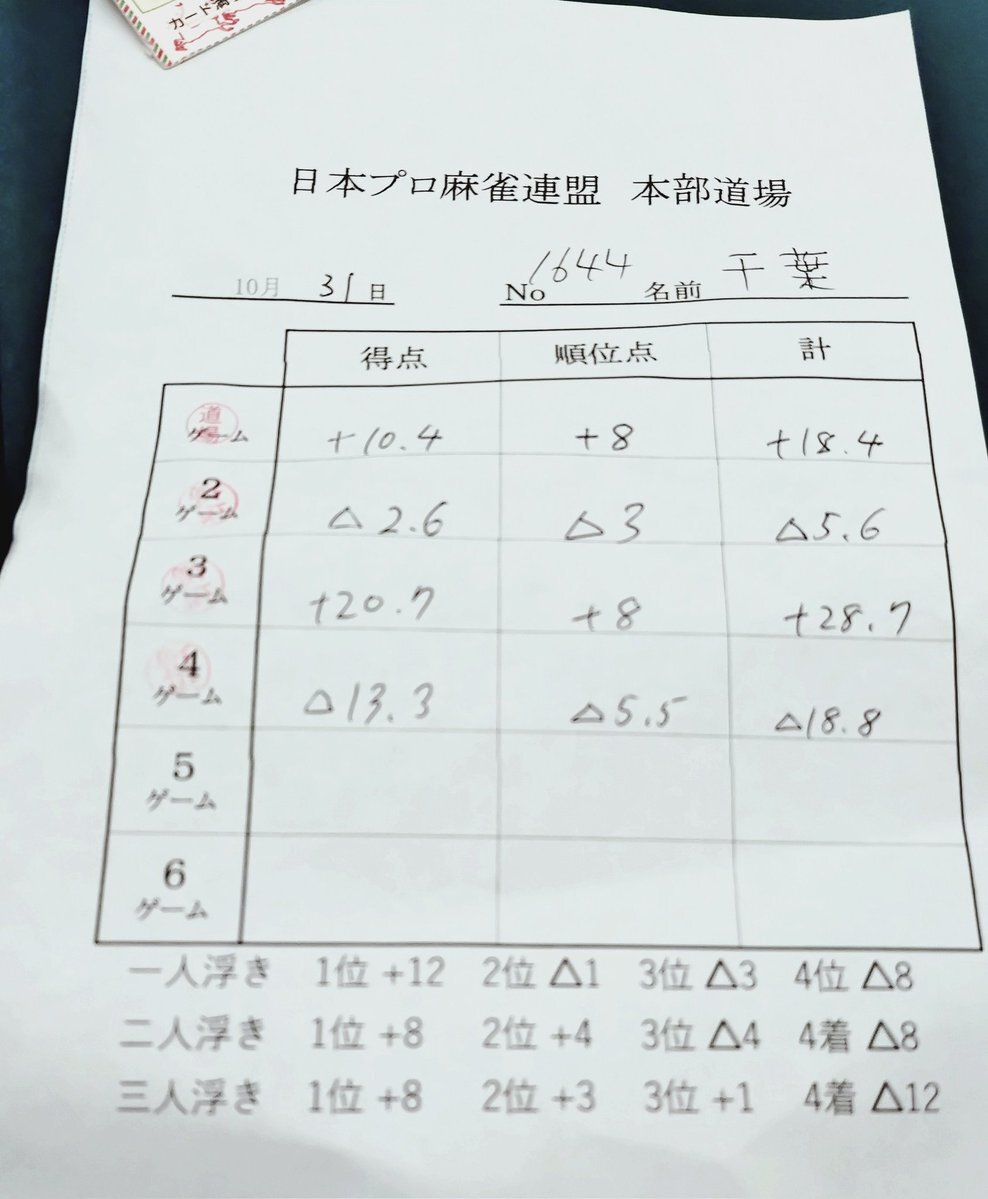 カード満
日本プロ麻雀連盟 本部道場
10月 31日 No 1644 名前 千葉
得点 順位点 計
道場 ゲーム +10.4 +8 +18.4
2 ゲーム △2.6 △3 △5.6
3 ゲーム +20.7 +8 +28.7
4 ゲーム △13.3 △5.5 △18.8
5 ゲーム
6 ゲーム
一人浮き 1位 +12 2位 △1 3位 △3 4位 △8
二人浮き 1位 +8 2位 +4 3位 △4 4着 △8
三人浮き 1位 +8 2位 +3 3位 +1 4着 △12